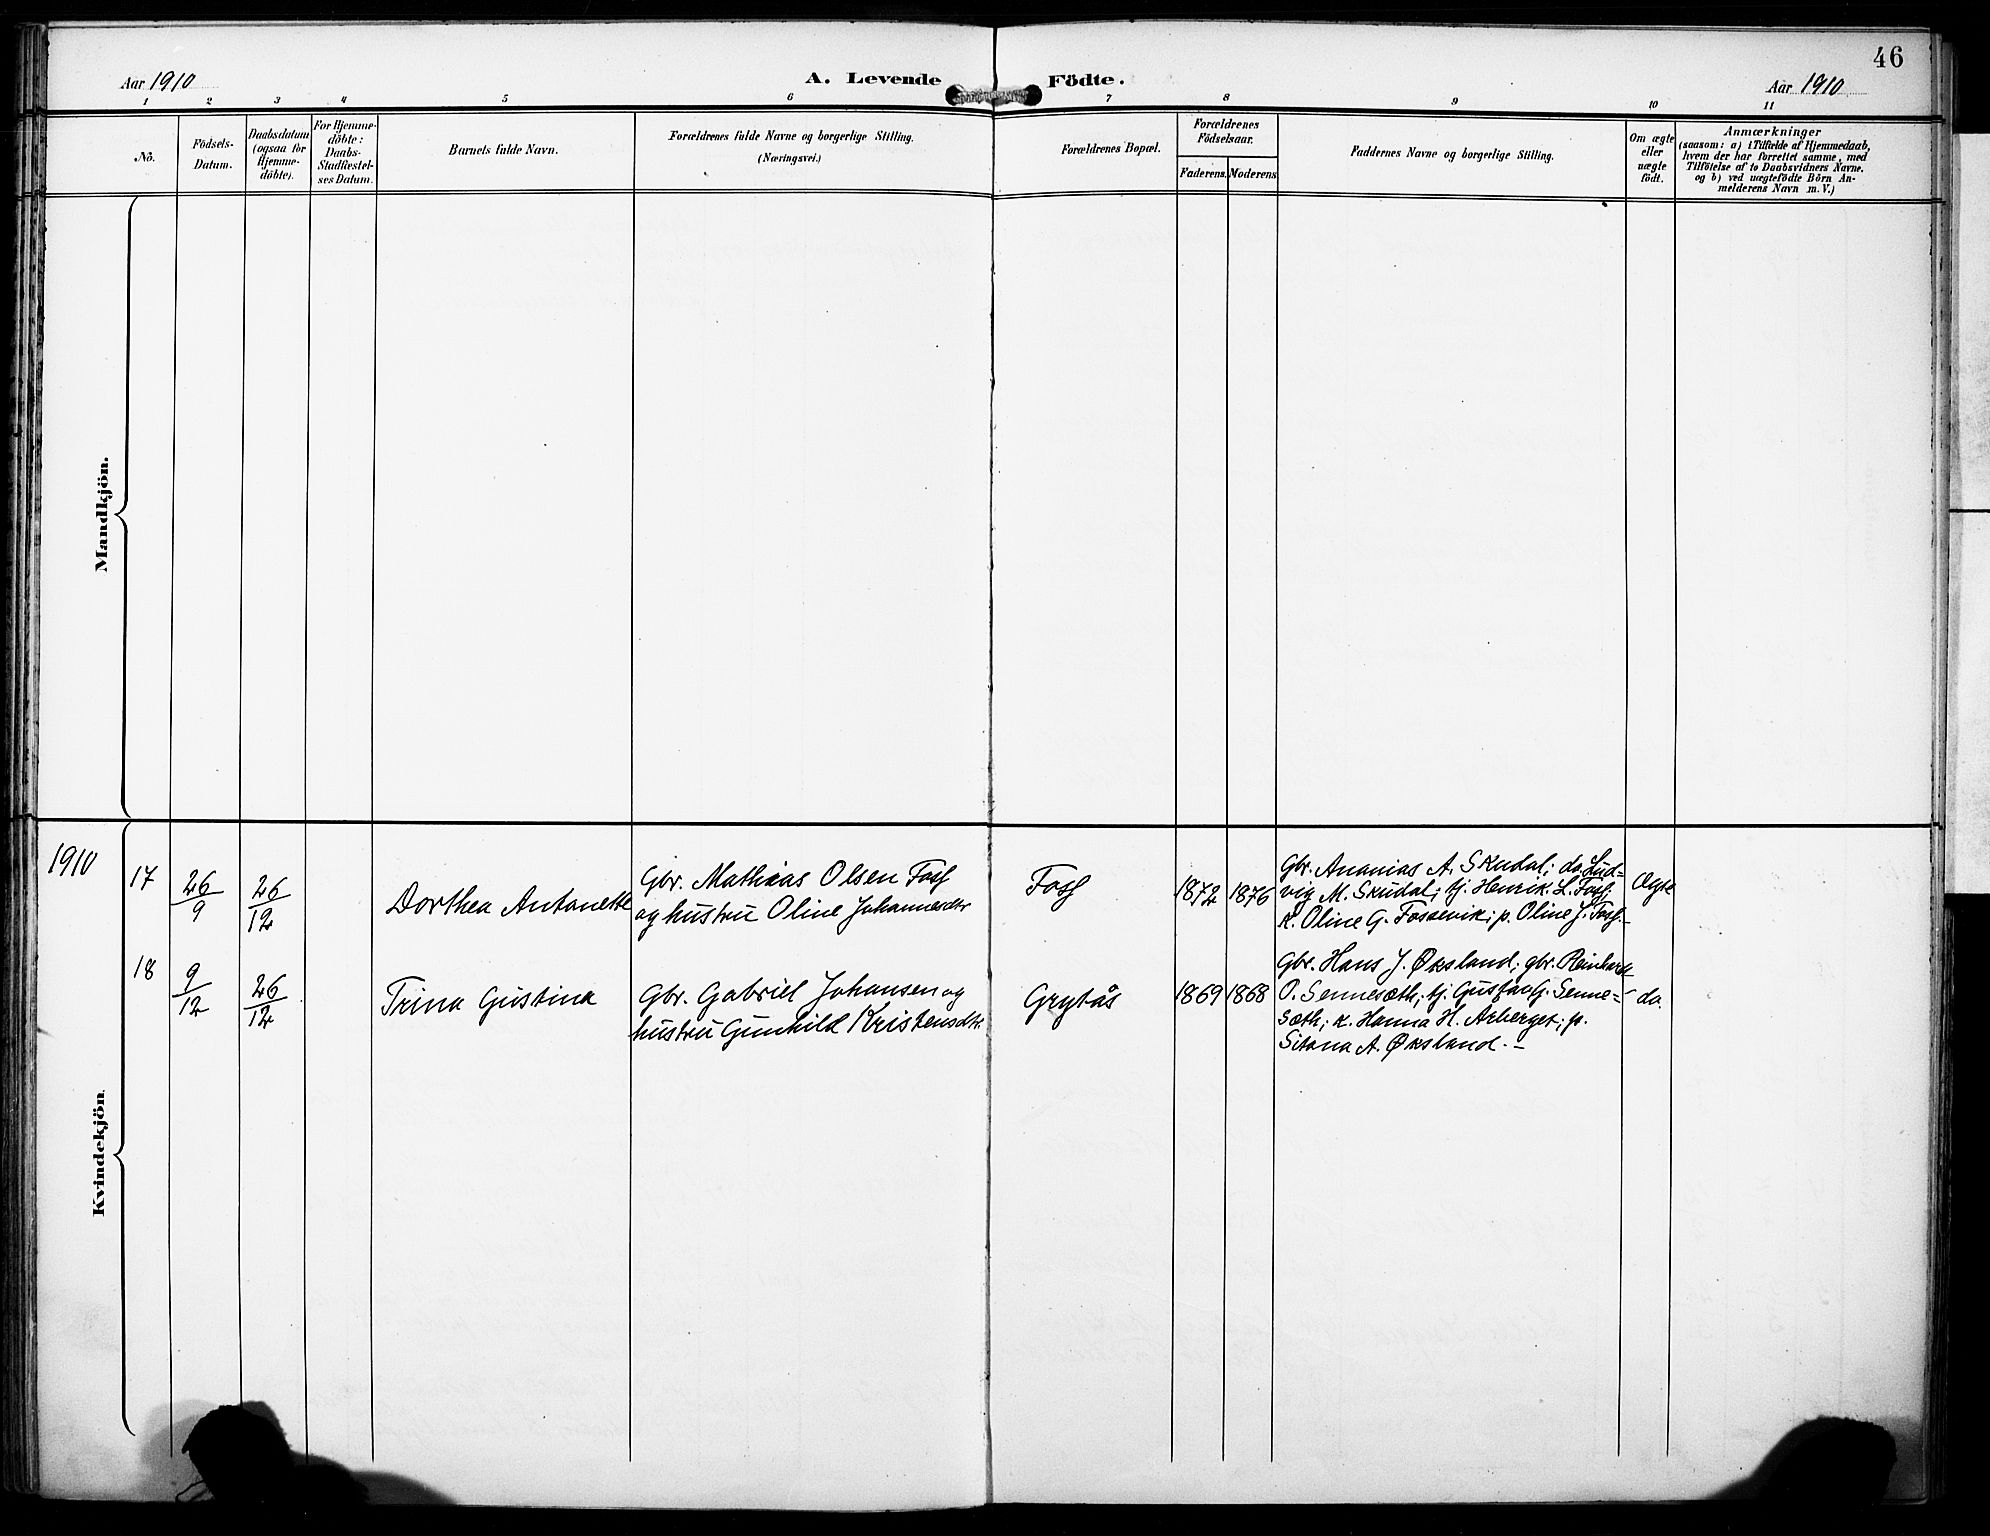 46
Aar 1910
A. Levende Födte.
Aar 1910
1 2 3 4 5 6 7 8 9 10 11
No.
Födsels-
Datum.
Daabsdatum
(ogsaa for
Hjemme-
döbte).
For Hjemme-
döbte:
Daabs-
Stadfæstel-
ses Datum.
Barnets fulde Navn.
Forældrenes fulde Navne og borgerlige Stilling.
(Næringsvei.)
Forældrenes Bopæl.
Forældrenes
Födselsaar.
Faderens. Moderens.
Faddernes Navne og borgerlige Stilling.
Om ægte
eller
uægte
födt.
Anmærkninger
(saasom: a) i Tilfælde af Hjemmedaab,
hvem der har forrettet samme, med
Tilföielse af to Daabsvidners Navne,
og b) ved uægtefödte Börn An-
melderens Navn m. V.)
Mandkjön.
Kvindekjön.
1910
17
26/9
26/12
Dorthea Antonette
Gbr. Mathias Olsen Foss
og hustru Oline Johannesdtr
Foss
1872 1876
Gbr. Ananias A. Skudal; do. Lud-
vig M. Skudal; tj. Henrik L. Foss;
k. Oline G. Fossevik; p. Oline J. Foss.-
Ægte
18
9/12
26/12
Trina Gustina
Gbr. Gabriel Johansen og
hustru Gunhild Kristensdtr.
Grytås
1869 1868
Gbr. Hans J. Øksland; gbr. Reinhard
O. Sennesæth; tj. Gustav G. Senne=
sæth; k. Hanna H. Arberget; p.
A. Øksland.-
do.